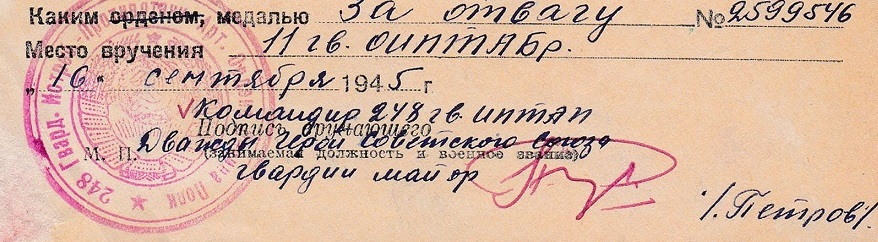 Каким орденом, медалью За отвагу № 2599546
Место вручения 11 гв. ОИПТАБр.
„16" сентября 1945 г.
Командир 248 гв. иптап
Подпись вручающего
Дважды герой советского союза
М. П. (занимаемая должность и военное звание)
гвардии майор
/Петров/
248 Гвард.
Полк